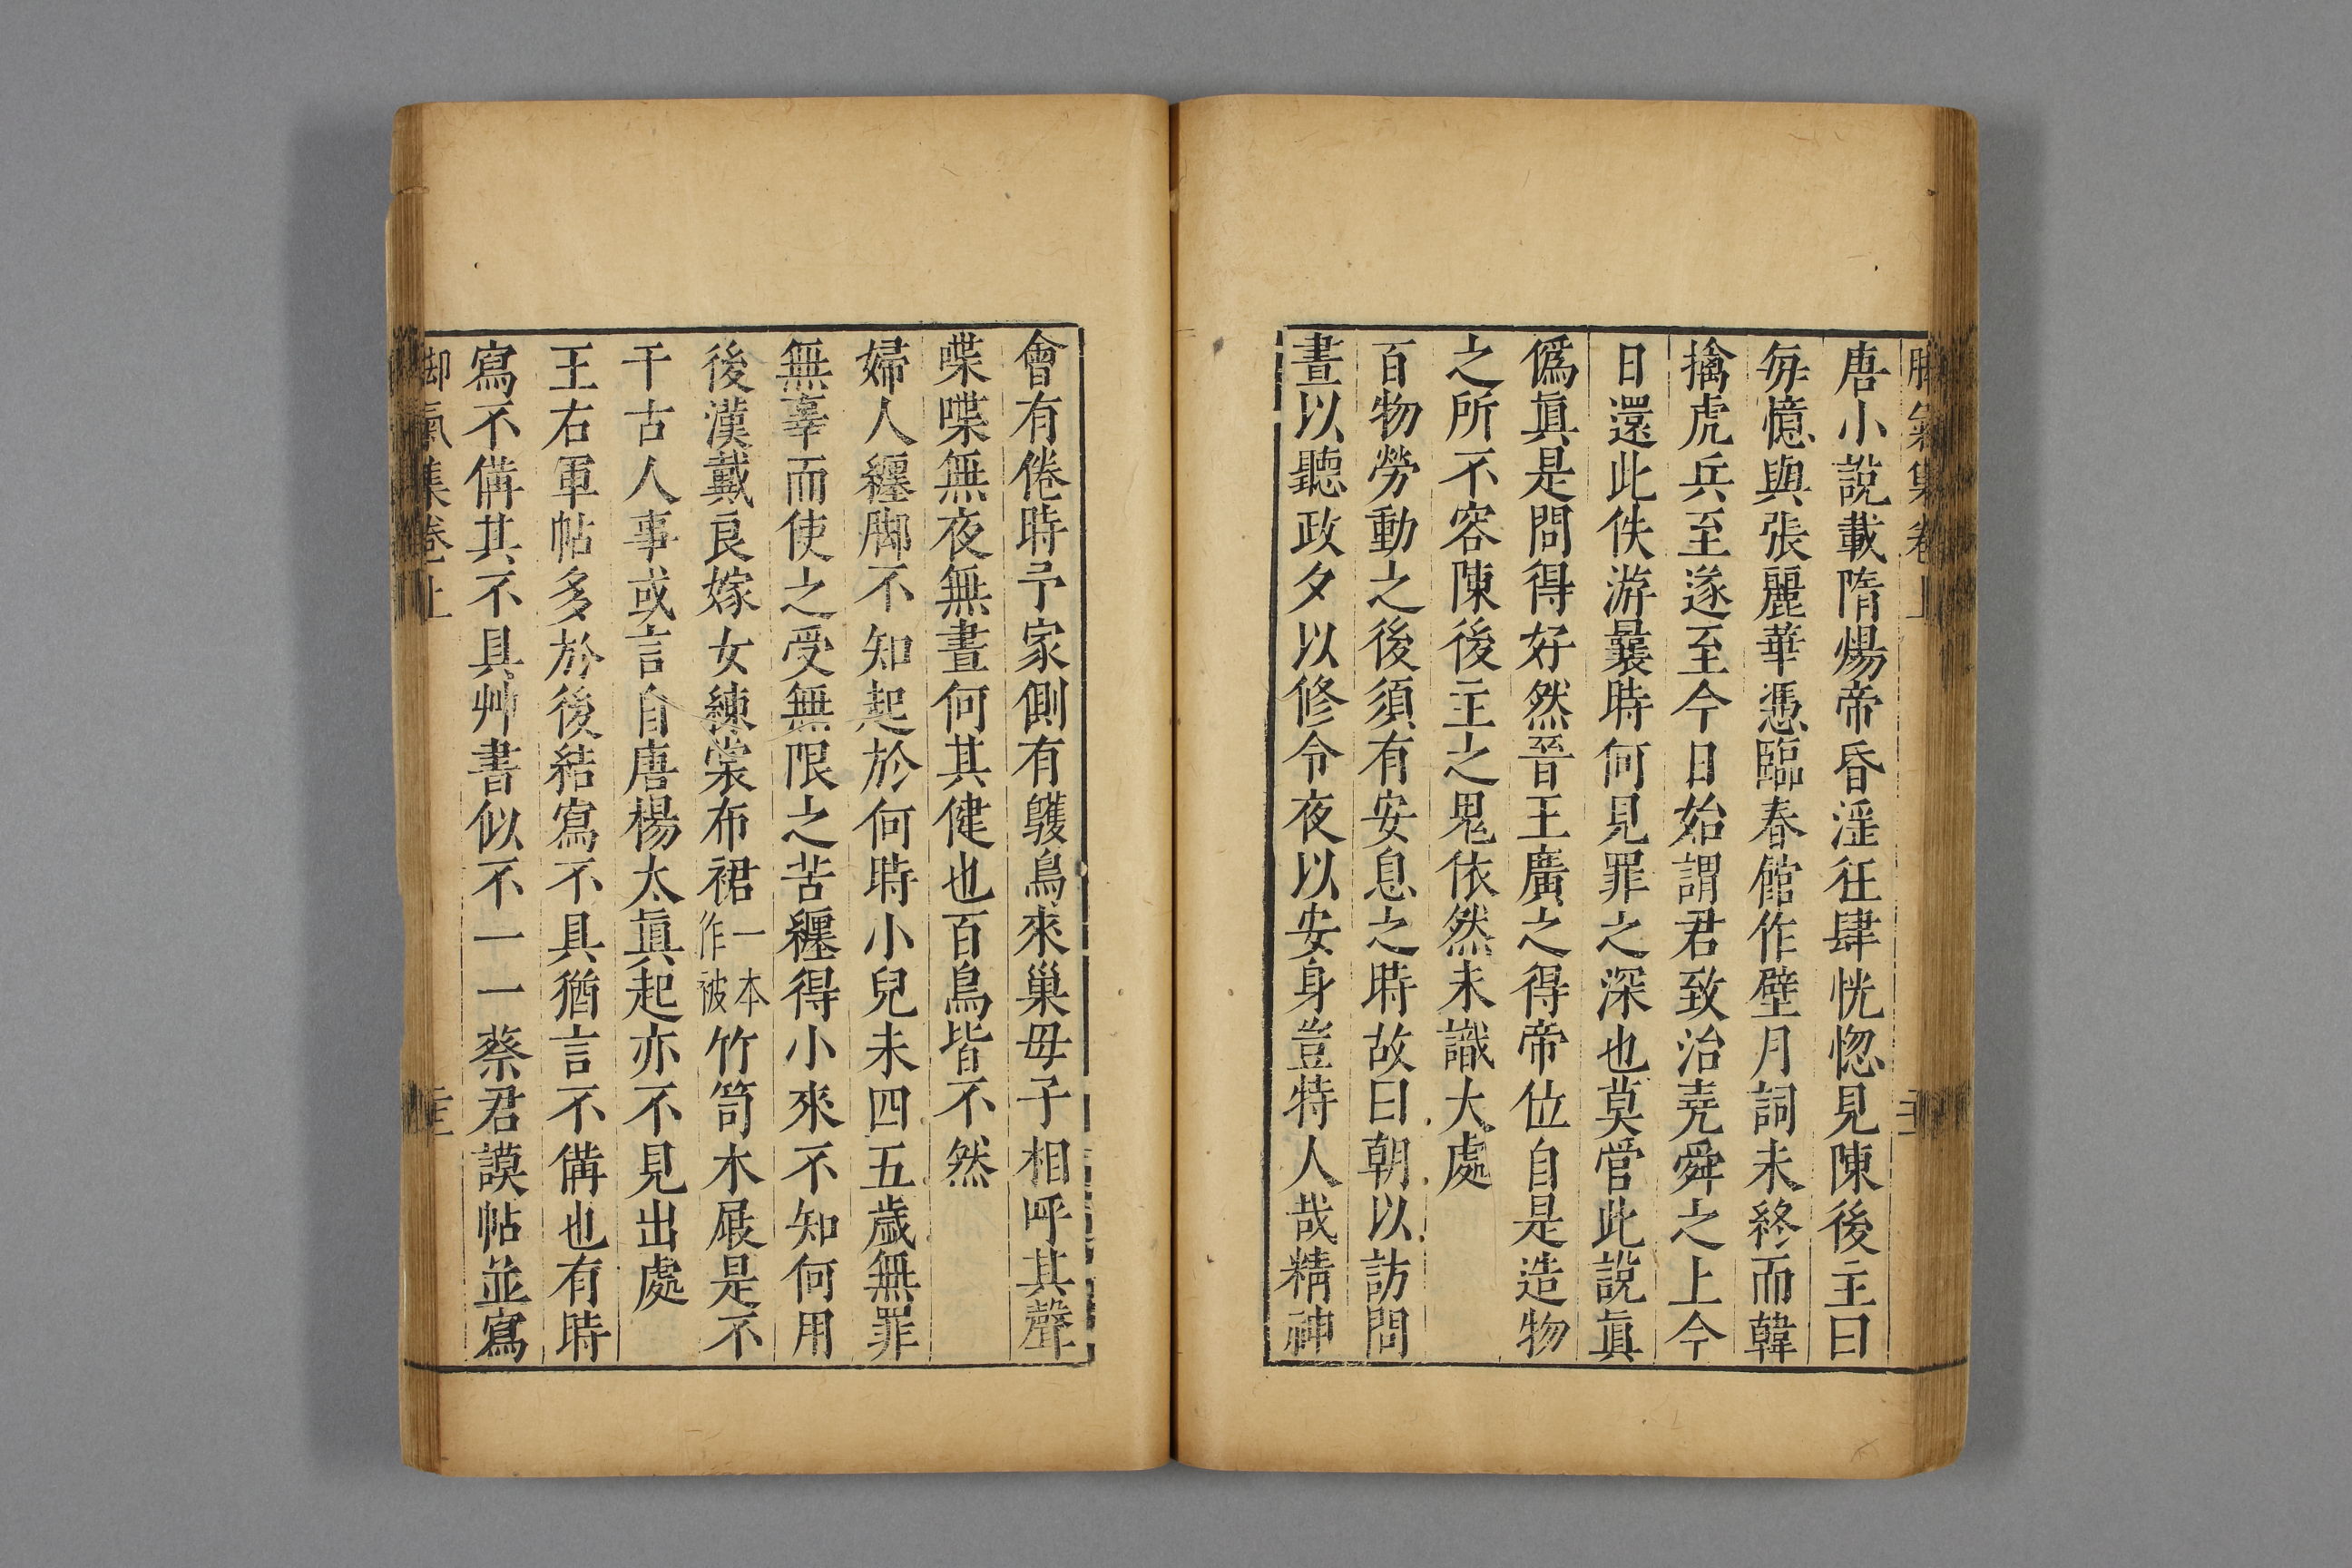 脚氣集卷上
唐小說載隋煬帝昏淫狂肆恍惚見陳後主曰
每憶與張麗華憑臨春館作璧月詞未終而韓
擒虎兵至遂至今日始謂君致治堯舜之上今
日還此佚游曩時何見罪之深也莫管此說眞
僞眞是問得好然晉王廣之得帝位自是造物
之所不容陳後主之鬼依然未識大處
百物勞動之後須有安息之時故曰朝以訪問
晝以聽政夕以修令夜以安身豈特人哉精神
會有倦時予家側有鸌鳥來巢母子相呼其聲
喋喋無夜無晝何其健也百鳥皆不然
婦人纏脚不知起於何時小兒未四五歲無罪
無辜而使之受無限之苦纏得小來不知何用
後漢戴良嫁女練裳布裙一本作被竹笥木屐是不
干古人事或言自唐楊太眞起亦不見出處
王右軍帖多於後結寫不具猶言不備也有時
寫不備其不具艸書似不一一蔡君謨帖並寫
脚氣集卷上